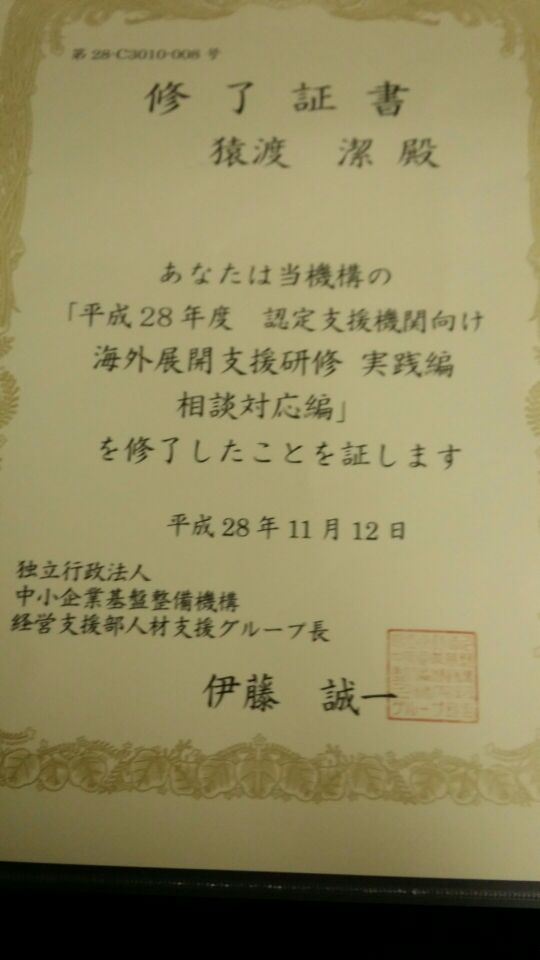 第 28-C3010-008 号
修了証書
猿渡 潔 殿
あなたは当機構の
「平成28年度 認定支援機関向け
海外展開支援研修 実践編
相談対応編」
を修了したことを証します
平成28年11月12日
独立行政法人
中小企業基盤整備機構
経営支援部人材支援グループ長
伊藤 誠一